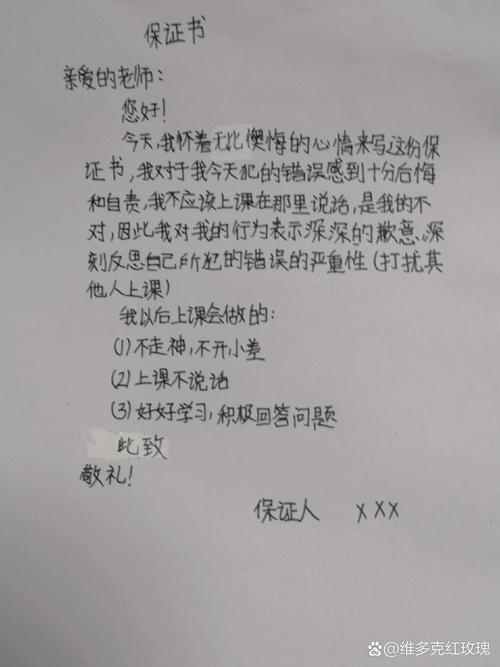 保证书
亲爱的老师：
您好！
今天，我怀着无比懊悔的心情来写这份保
证书，我对于我今天犯的错误感到十分后悔
和自责，我不应该上课在那里说话，是我的不
对，因此我对我的行为表示深深的歉意，深
刻反思自己所犯的错误的严重性（打扰其
他人上课）
我以后上课会做的：
(1)不走神，不开小差
(2)上课不说话
(3)好好学习，积极回答问题
此致
敬礼！
保证人 xxx
@维多克红玫瑰